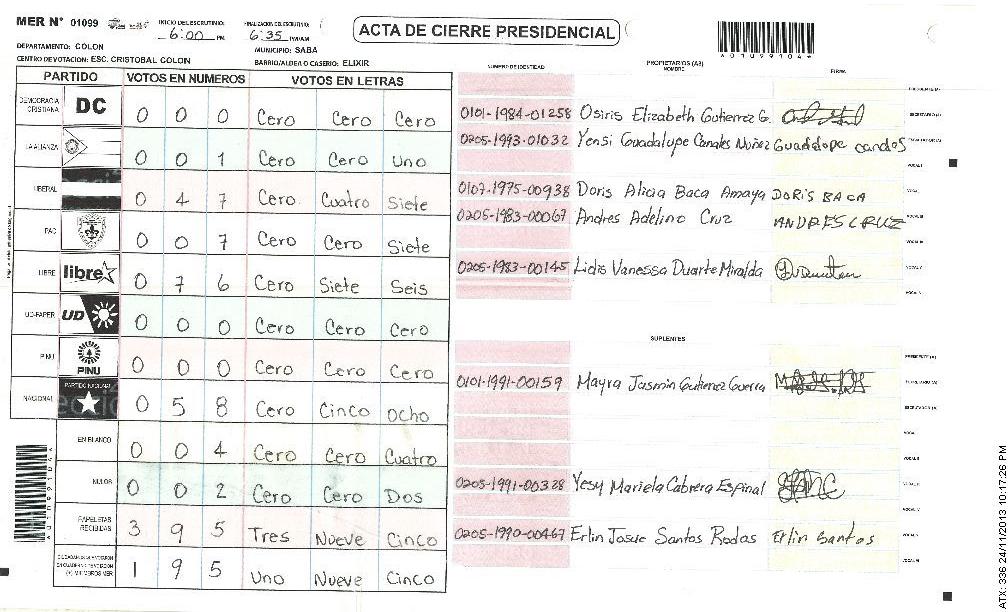 MER Nº 01099
INICIO DEL ESCRUTINIO: 6:00 PM
FINALIZACION DEL ESCRUTINIO: 6:35 PM/AM
ACTA DE CIERRE PRESIDENCIAL
*01099104*
DEPARTAMENTO: COLON
MUNICIPIO: SABA
CENTRO DE VOTACION: ESC. CRISTOBAL COLON
BARRIO/ALDEA O CASERIO: ELIXIR
PARTIDO VOTOS EN NUMEROS VOTOS EN LETRAS
DEMOCRACIA CRISTIANA DC 0 0 0 Cero Cero Cero
LA ALIANZA 0 0 1 Cero Cero Uno
LIBERAL 0 4 7 Cero Cuatro Siete
PAC 0 0 7 Cero Cero Siete
LIBRE libre 0 7 6 Cero Siete Seis
UD-FAPER UD 0 0 0 Cero Cero Cero
PINU PINU 0 0 0 Cero Cero Cero
NACIONAL PARTIDO NACIONAL 0 5 8 Cero Cinco Ocho
EN BLANCO 0 0 4 Cero Cero Cuatro
NULOS 0 0 2 Cero Cero Dos
PAPELETAS RECIBIDAS 3 9 5 Tres Nueve Cinco
(+) MIEMBROS MER 1 9 5 Uno Nueve Cinco
NUMERO DE IDENTIDAD
PROPIETARIOS (AS)
NOMBRE
FIRMA
PRESIDENTE (A)
0101-1984-01258 Osiris Elizabeth Gutierrez G. SECRETARIO (A)
0205-1993-01032 Yensi Guadalupe Canales Nuñez Guadalope canales ESCRUTADOR (A)
VOCAL I
0107-1975-00938 Doris Alicia Baca Amaya DORIS BACA
0205-1983-00067 Andres Adelino Cruz ANDRES CRUZ VOCAL III
VOCAL IV
0205-1983-00145 Lidis Vanessa Duarte Miralda VOCAL V
SUPLENTES
PRESIDENTE (A)
0101-1991-00159 Mayra Jasmin Gutierrez Guerra SECRETARIO (A)
ESCRUTADOR (A)
VOCAL I
VOCAL II
0205-1991-00328 Yesy Mariela Cabrera Espinal
VOCAL IV
0205-1990-00467 Erlin Josue Santos Rodas Erlin Santos VOCAL V
ATX: 336 24/11/2013 10:17:26 PM